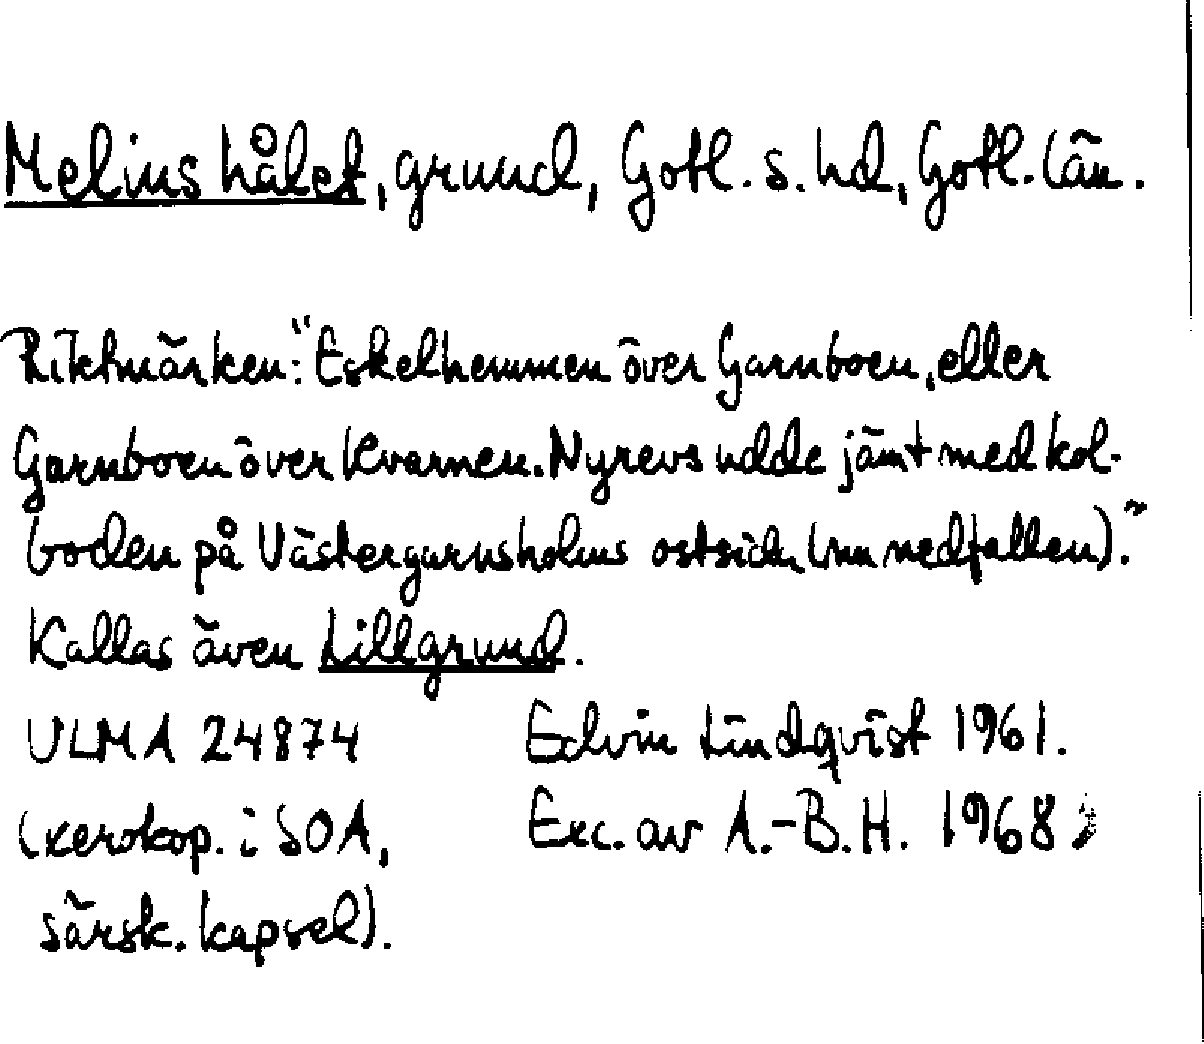 Melins hålet, grund, Gotl. s. hd, Gotl. län.
Riktmärken: "Eskelhemmen över Garnboen, eller
Garnboen över Kvarnen. Nyrevs udde jämt med kol-
boden på Västergarnsholms ostsida (nu nedfallen)."
Kallas även Lillgrund.
ULMA 24874 Edvin Lindqvist 1961.
(xerokop. i SOA, Exc. av A.-B.H. 1968
särsk. kapsel).